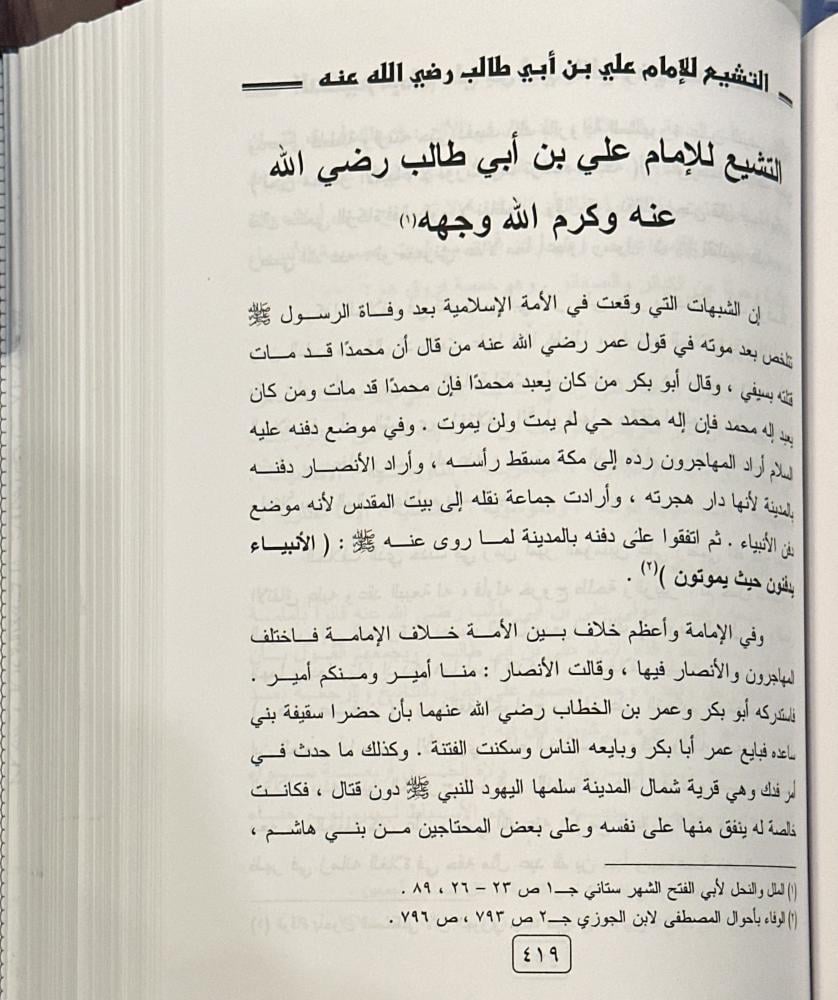 التشيع للإمام علي بن أبي طالب رضي الله عنه
التشيع للإمام علي بن أبي طالب رضي الله
عنه وكرم الله وجهه(١)
إن الشبهات التي وقعت في الأمة الإسلامية بعد وفاة الرسول ﷺ
تتلخص بعد موته في قول عمر رضي الله عنه من قال أن محمدًا قد مات
قتلته بسيفي ، وقال أبو بكر من كان يعبد محمدًا فإن محمدًا قد مات ومن كان
يعبد إله محمد فإن إله محمد حي لم يمت ولن يموت . وفي موضع دفنه عليه
السلام أراد المهاجرون رده إلى مكة مسقط رأسه ، وأراد الأنصار دفنه
بالمدينة لأنها دار هجرته ، وأرادت جماعة نقله إلى بيت المقدس لأنه موضع
دفن الأنبياء . ثم اتفقوا على دفنه بالمدينة لما روى عنه ﷺ : ( الأنبياء
يدفنون حيث يموتون )(٢) .
وفي الإمامة وأعظم خلاف بين الأمة خلاف الإمامة فاختلف
المهاجرون والأنصار فيها ، وقالت الأنصار : منا أمير ومنكم أمير .
فاستدركه أبو بكر وعمر بن الخطاب رضي الله عنهما بأن حضرا سقيفة بني
ساعده فبايع عمر أبا بكر وبايعه الناس وسكنت الفتنة . وكذلك ما حدث في
أمر فدك وهي قرية شمال المدينة سلمها اليهود للنبي ﷺ دون قتال ، فكانت
خالصة له ينفق منها على نفسه وعلى بعض المحتاجين من بني هاشم ،
(١) الملل والنحل لأبي الفتح الشهر ستاني جـ١ ص ٢٣ – ٢٦ ، ٨٩ .
(٢) الوفاء بأحوال المصطفى لابن الجوزي جـ٢ ص ٧٩٣ ، ص ٧٩٦ .
٤١٩